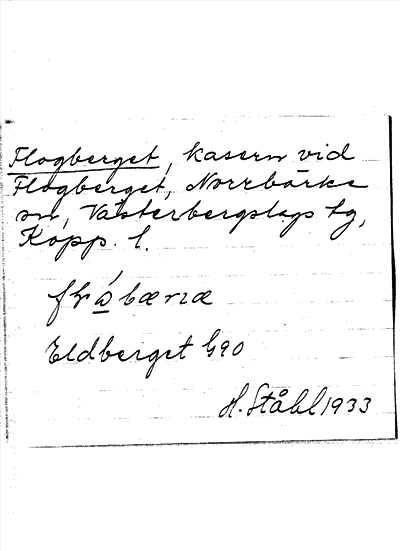 Flogberget, kasern vid
Flogberget, Norrbärke
sn, Västerbergslags tg,
Kopp. l.
Eldberget G90
H. Ståhl 1933